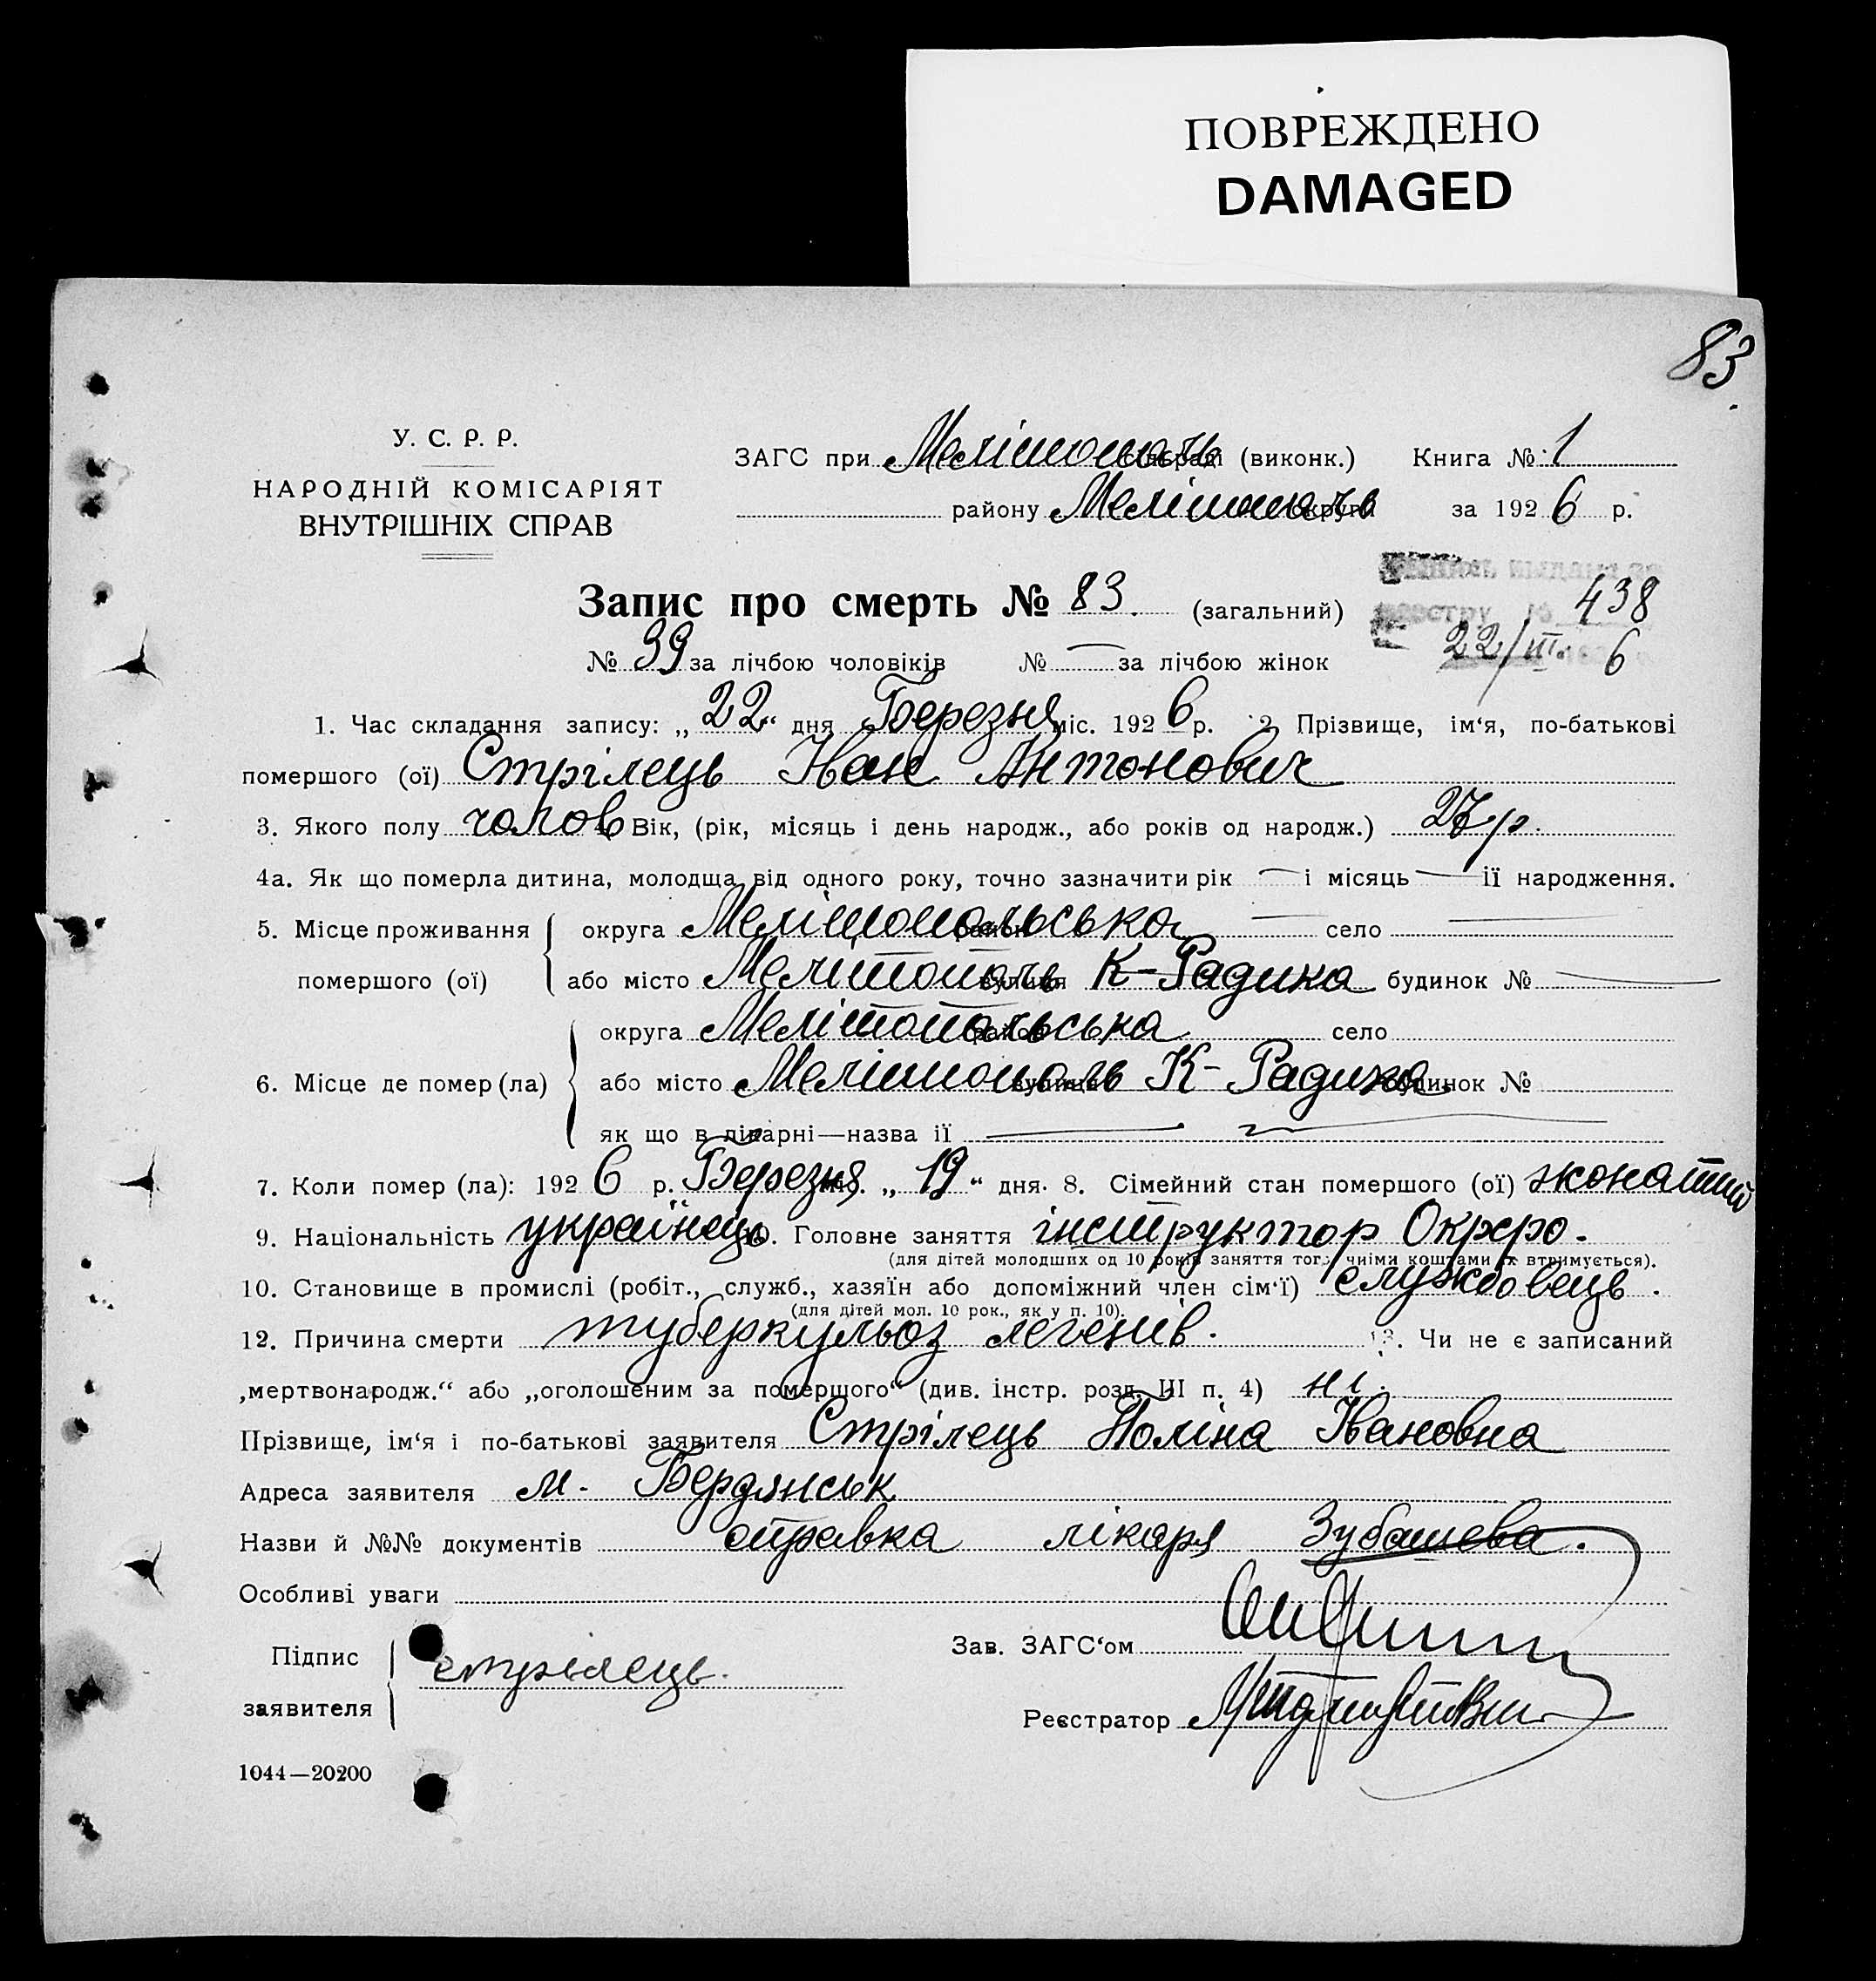 ПОВРЕЖДЕНО
DAMAGED
83.
У. С. Р. Р.
НАРОДНІЙ КОМІСАРІЯТ
ВНУТРІШНІХ СПРАВ
ЗАГС при Мелітополь сільраді (виконк.) Книга № 1
району Мелітополь округи за 1926 р.
Запис про смерть № 83. (загальний)
438
22/III 6
№ 39 за лічбою чоловіків № — за лічбою жінок
1. Час складання запису: „22“ дня Березня міс. 1926 р. 2 Прізвище, ім‘я, по-батькові
помершого (ої) Стрілець Іван Антонович
3. Якого полу чолов 4. Вік, (рік, місяць і день народж., або років од народж.) 27 р.
4а. Як що померла дитина, молодща від одного року, точно зазначити рік — і місяць — її народження.
5. Місце проживання округа Мелітопольська район — село —
помершого (ої) або місто Мелітополь вулиця К-Радика будинок № —
округа Мелітопольська район село
6. Місце де помер (ла) або місто Мелітополь вулиця К-Радика будинок №
як що в лікарні—назва її —
7. Коли помер (ла): 1926 р. Березня міс. „19“ дня. 8. Сімейний стан помершого (ої) жонатий
9. Національність українець 10. Головне заняття інструктор Окр
(для дітей молодших од 10 років заняття того, чиїми коштами їх втримується).
10. Становище в промислі (робіт., служб., хазяїн або допоміжний член сім‘ї) службовець.
(для дітей мол. 10 рок., як у п. 10).
12. Причина смерти туберкульоз легенів. 13. Чи не є записаний
„мертвонародж.“ або „оголошеним за померщого“ (див. інстр. розд. III п. 4) ні.
Прізвище, ім‘я і по-батькові заявителя Стрілець Поліна Івановна
Адреса заявителя м. Бердянськ
Назви й №№ документів справка лікаря Зубашева.
Особливі уваги
Підпис Стрілець.
Зав. ЗАГС‘ом
заявителя
Реєстратор
1044—20200